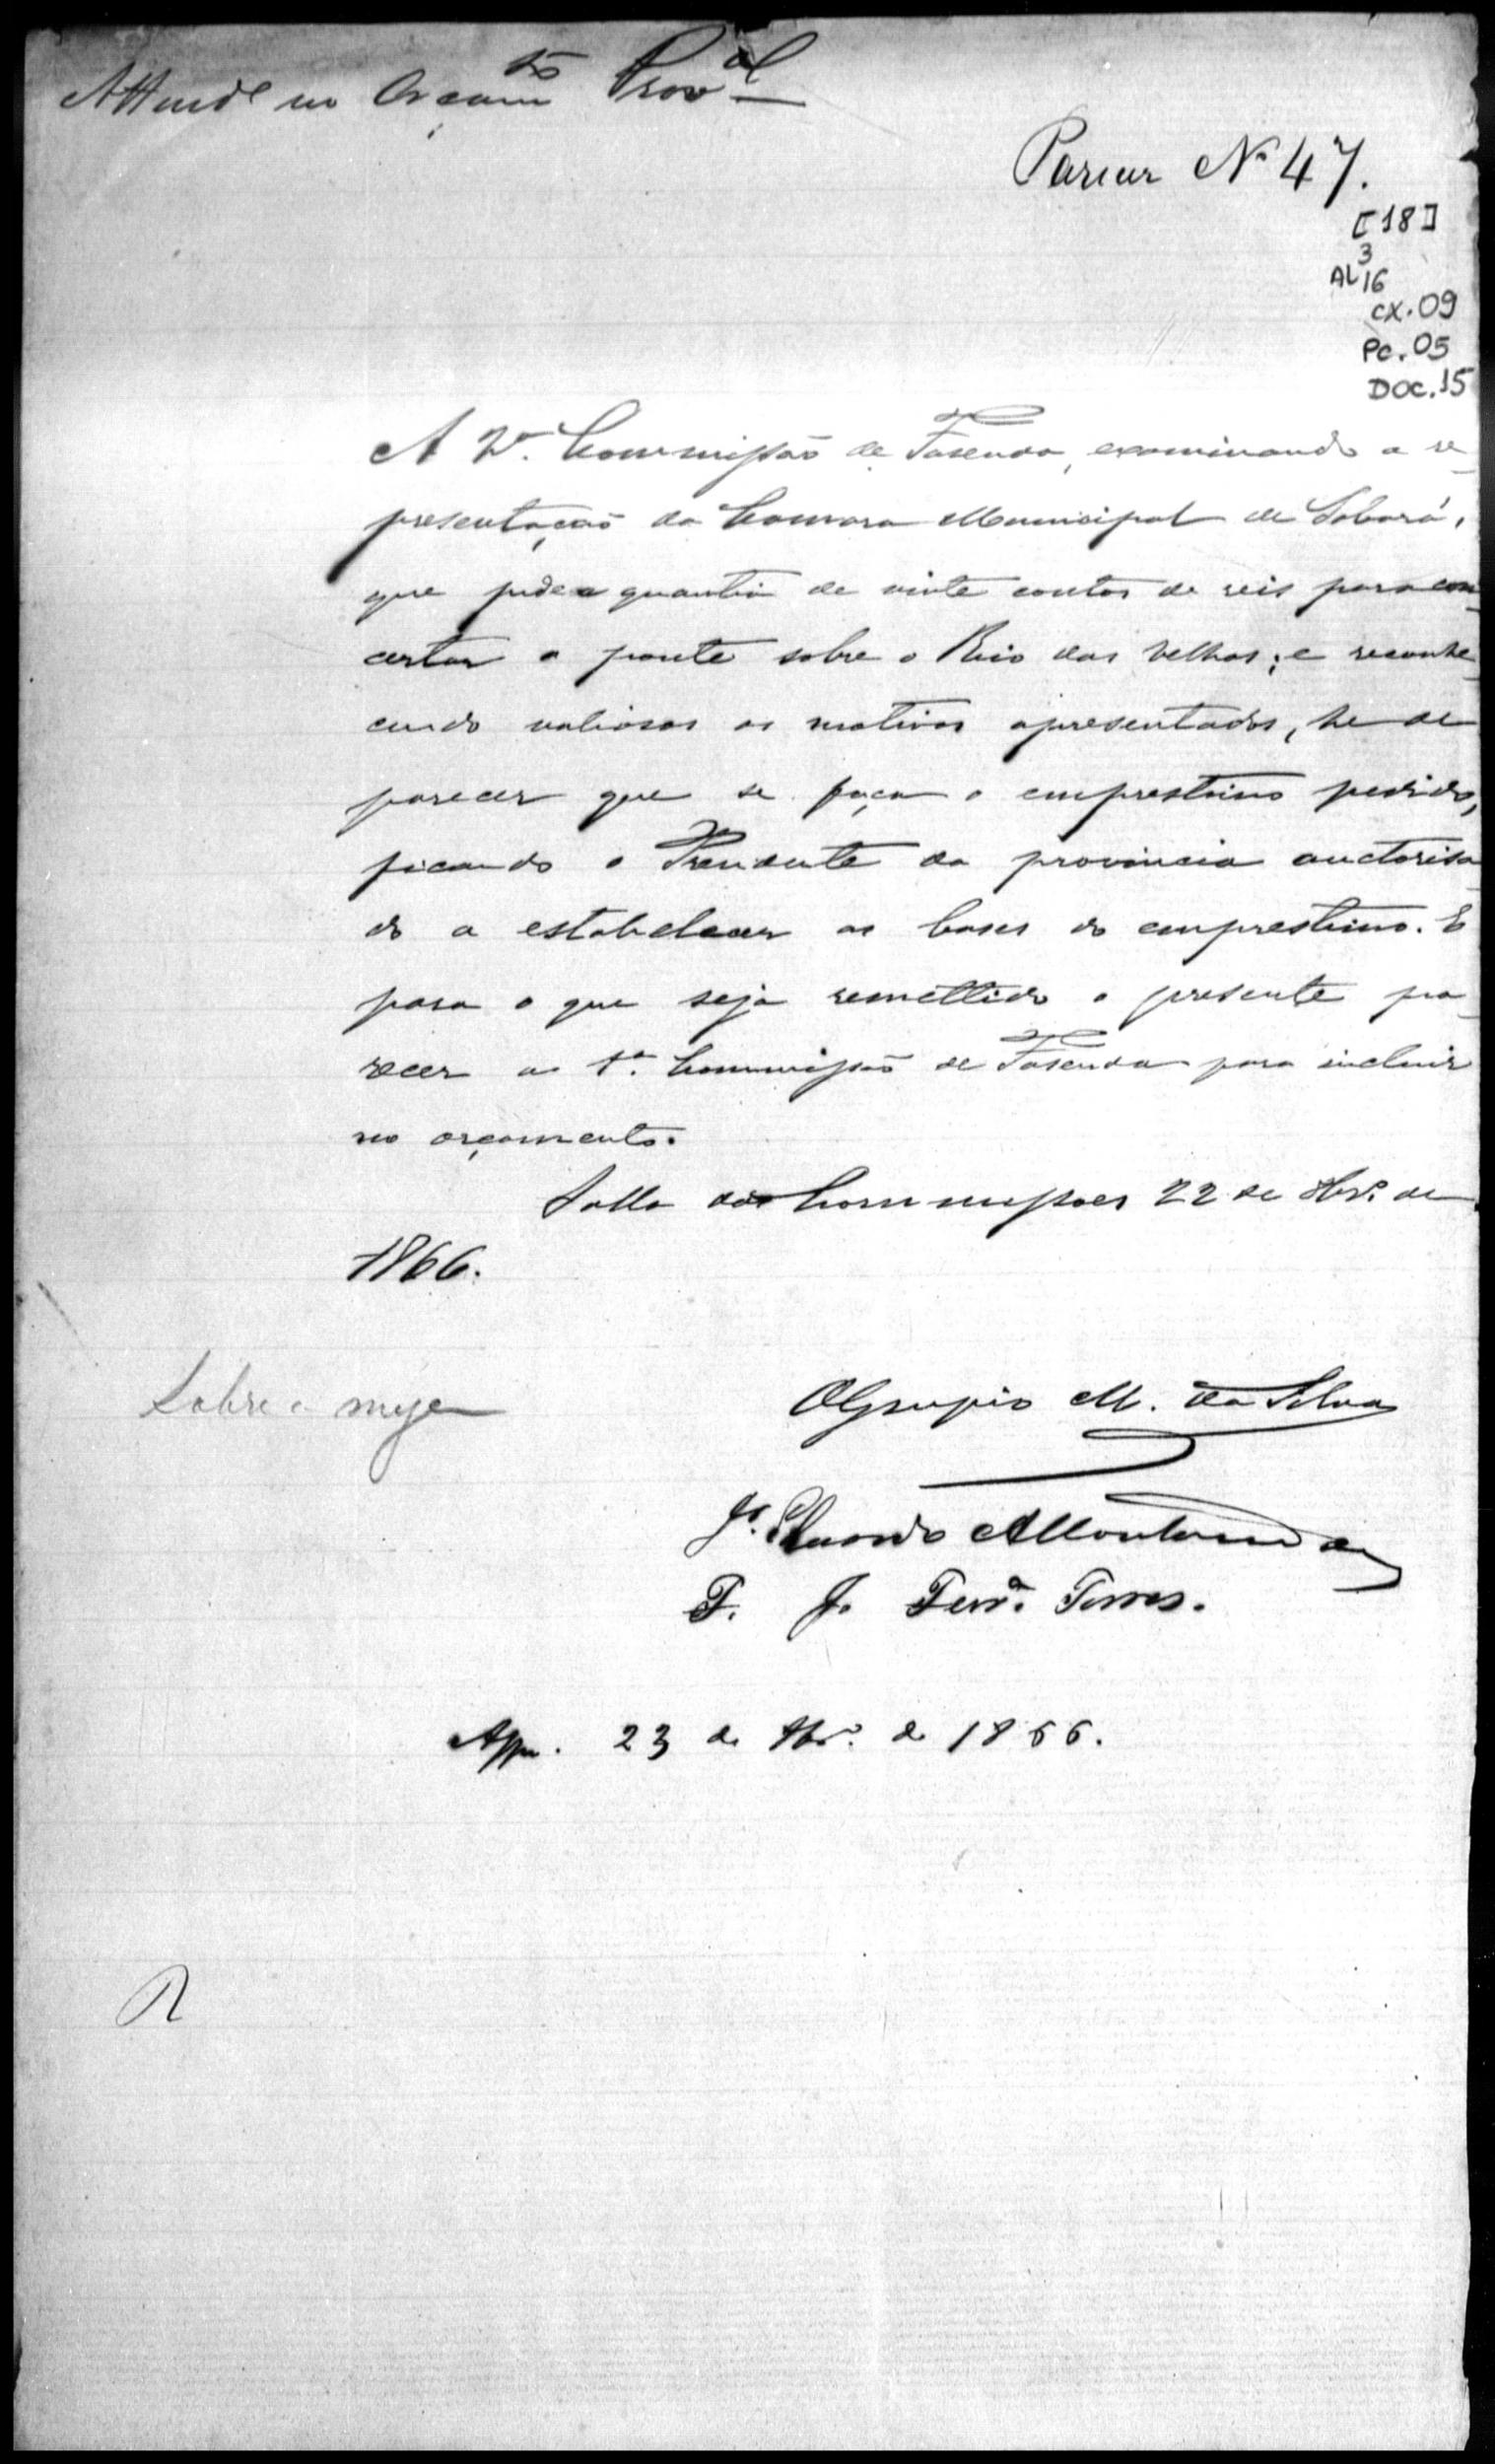 Attende no Orçam.to Prov.al
Parecer Nº 47.
[18]
3
AL 16
cx. 09
Pc. 05
DOC. 15
A 2ª. Commissão de Fasenda, examinando a re
presentação da Camara Municipal de Sabará,
que pede a quantia de vinte contos de reis para con
certar a ponte sobre o Rio das Velhas; e reconhe
cendo valiosos os motivos apresentados, he de
parecer que se faça o emprestimo pedido,
ficando o Presidente da provincia auctorisa
do a estabelecer as bases do emprestimo. E
para o que seja remettido o presente pa
recer a 1ª. Commissão de Fasenda para incluir
no orçamento.
Salla das Commissões 22 de 8br.º de
1866.
Sobre a mesa
Olympio M. da Silva
Jº. Eduardo
F. J. Ferr.ª Torres.
App. 23 de 8br.º de 1866.
R